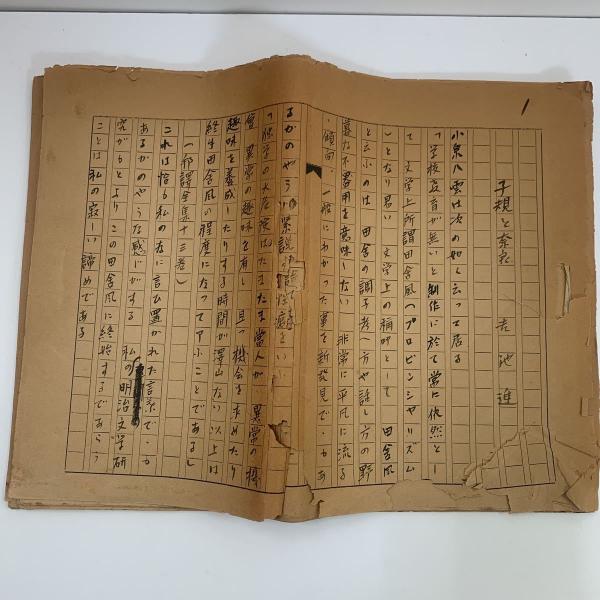 1
子規と奈良 古池進
小泉八雲は次の如く云って居る
「学校教育が無いと制作に於て常に依然とし
て 文学上所謂田舎風(プロビンシャリズム
)となり易い 文学上の稱呼として 田舎風
と云ふのは 田舎の調子考へ方や話し方の野
暮な不器用を意味しない 非常に平凡に流る
傾向、一般にわかった事を新発見で、もあ
るかのやうに
「独学の大危険はたまたま當人が 異常の機
會 異常の趣味を有し 且つ機会を求めたり
趣味を養成したりする時間が澤山ない以上は
終生田舎風の程度になって了ふことである」
(一部譯全集十三巻)
これは恰も私の為に言ひ置かれた言葉で、も
あるかのやうな感じがする 私の明治文学研
究がもとよりこの田舎風に終始するであらう
ことは私の寂しい諦めである